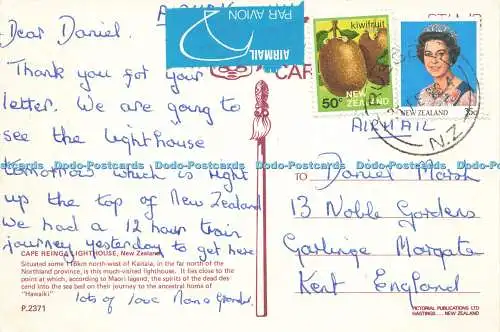 AIRMAIL
Dear Daniel.
Thank you for your
letter. We are going to
see the lighthouse
tomorrow which is right
up the top of New Zealand
We had a 12 hour train
journey yesterday to get here
lots of love
CAPE REINGA LIGHTHOUSE, New Zealand
Situated some 116km north-west of Kaitaia, in the far north of the
Northland province, is this much-visited lighthouse. It lies close to the
point at which, according to Maori legend, the spirits of the dead des-
cend into the sea bed on their journey to the ancestral homes of
"Hawaiki"
P.2371
AIRMAIL
PAR AVION
CAR
kiwifruit
50c
NEW
ZEALAND
NEW ZEALAND
35c
N.Z.
AIRMAIL
TO
Daniel Marsh
13 Noble Gardens
Garlinge Margate
Kent England
PICTORIAL PUBLICATIONS LTD
HASTINGS NEW ZEALAND
Dodo-Postcards Dodo-Postcards Dodo-Postcards Dodo-Postcards Dodo-Postcards